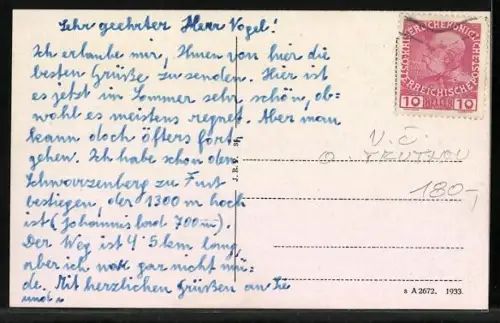 Sehr geehrter Herr Vogel!
Ich erlaube mir, Ihnen von hier die
besten Grüße zu senden. Hier ist
es jetzt im Sommer sehr schön, ob-
wohl es meistens regnet. Aber man
kann doch öfters fort
gehen. Ich habe schon den
Schwarzenberg zu Fuß
bestiegen, der 1300 m hoch
ist (Johannisbad 700 m).
Der Weg ist 4-5 km lang,
aber ich war gar nicht mü-
de. Mit herzlichen Grüßen an Sie
und
KAISERLICHE KÖNIGLICHE
ÖSTERREICHISCHE POST
10 HELLER 10
V. Č.
TRUTNOV
180,-
J. R. P. Sf.
s A 2672. 1933.